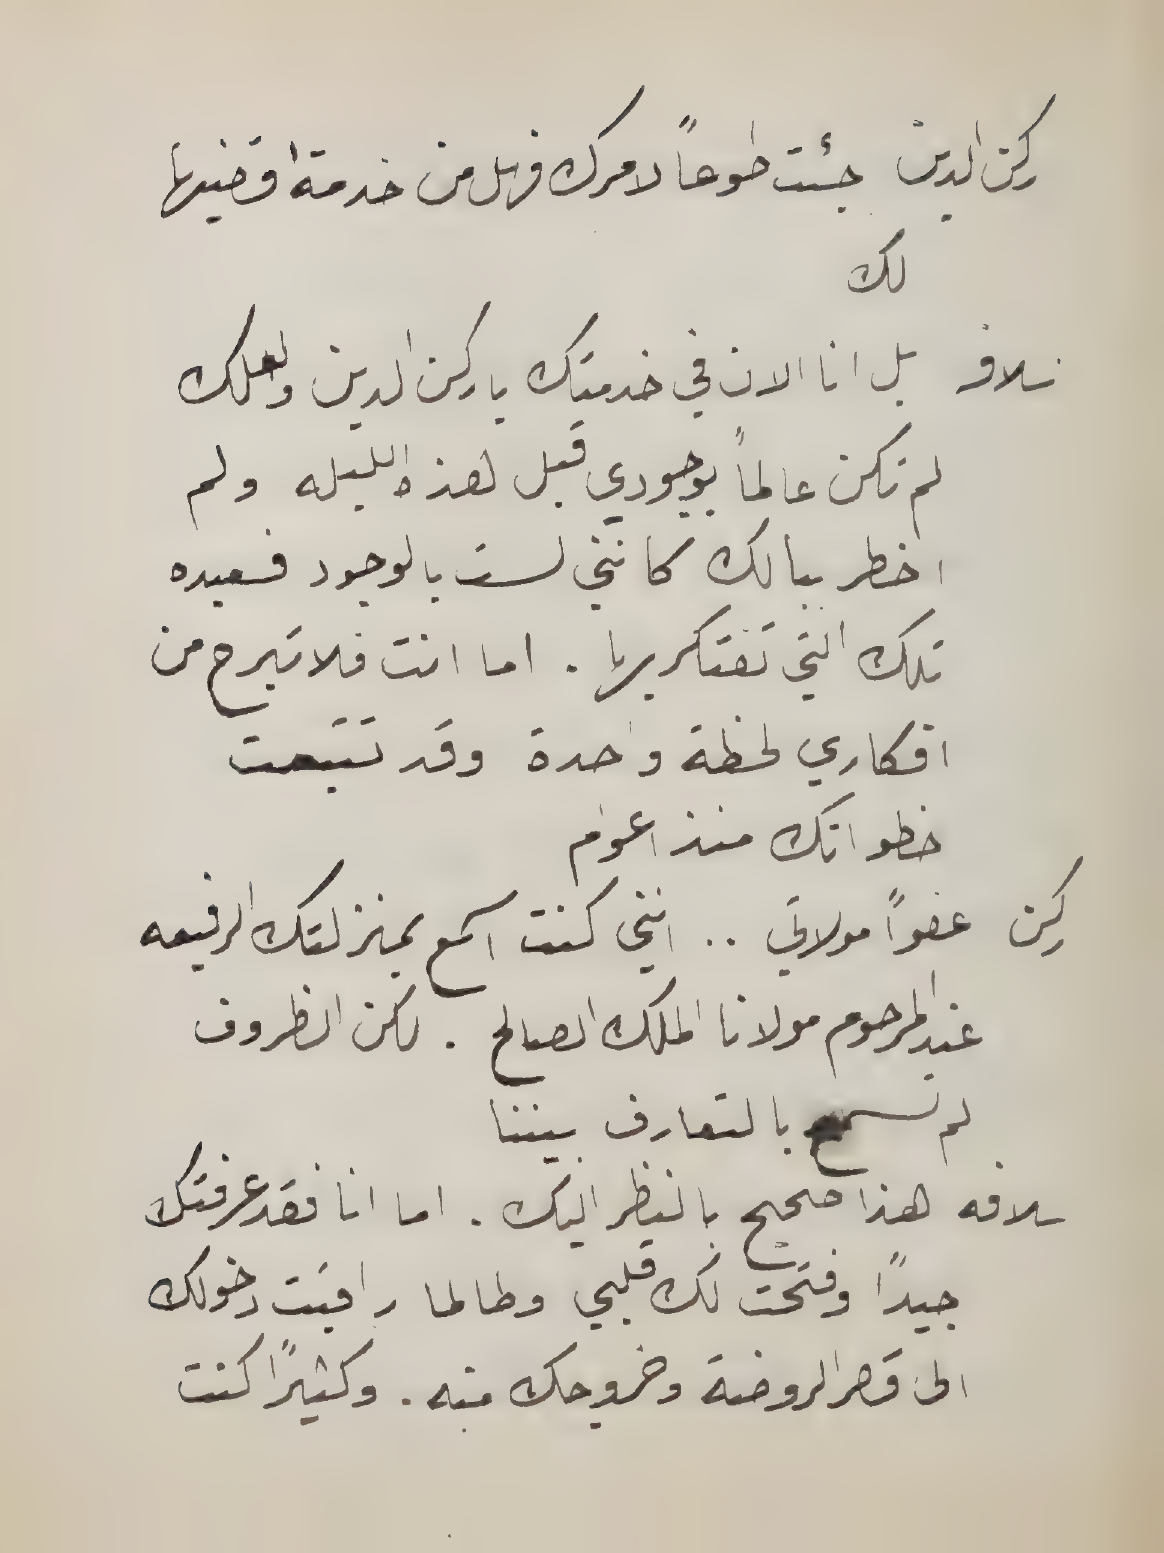 ركن الدين جئت طوعاً لامرك فهل من خدمة اقضيها
لك
سلاف بل انا الان في خدمتك يا ركن الدين ولعلك
لم تكن عالماً بوجودي قبل هذه الليله ولم
اخطر ببالك كانني لست بالوجود فسعيده
تلك التي تفتكر بها . اما انت فلا تبرح من
افكاري لحظة واحدة وقد تتبعت
خطواتك منذ اعوام
ركن عفواً مولاتي .. انني كنت اسمع بمنزلتك الرفيعه
عند المرحوم مولانا الملك الصالح . لكن الظروف
لم تسمح بالتعارف بيننا
سلافه هذا صحيح بالنظر اليك . اما انا فقد عرفتك
جيداً وفتحت لك قلبي وطالما راقبت دخولك
الى قصر الروضة وخروجك منه . وكثيراً كنت